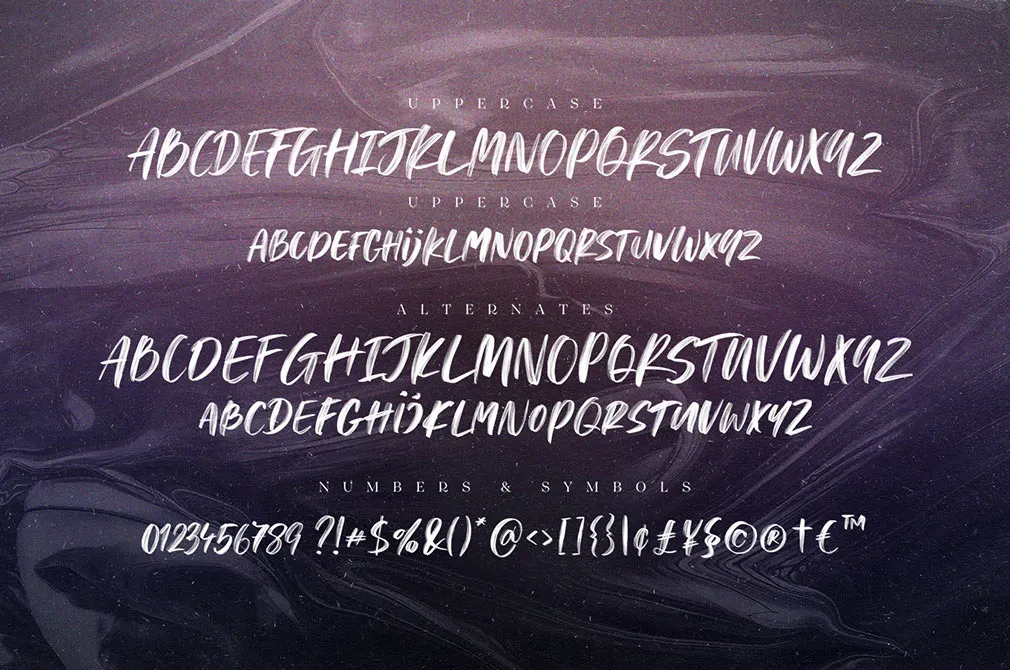 UPPERCASE
ABCDEFGHIJKLMNOPQRSTUVWXYZ
UPPERCASE
ABCDEFGHijKLMNOPQRSTUVWXYZ
ALTERNATES
ABCDEFGHIJKLMNOPQRSTUVWXYZ
ABCDEFGHijKLMNOPQRSTUVWXYZ
NUMBERS & SYMBOLS
0123456789 ?!#$%&()*@<>[]{}|¢£¥§©®†€™